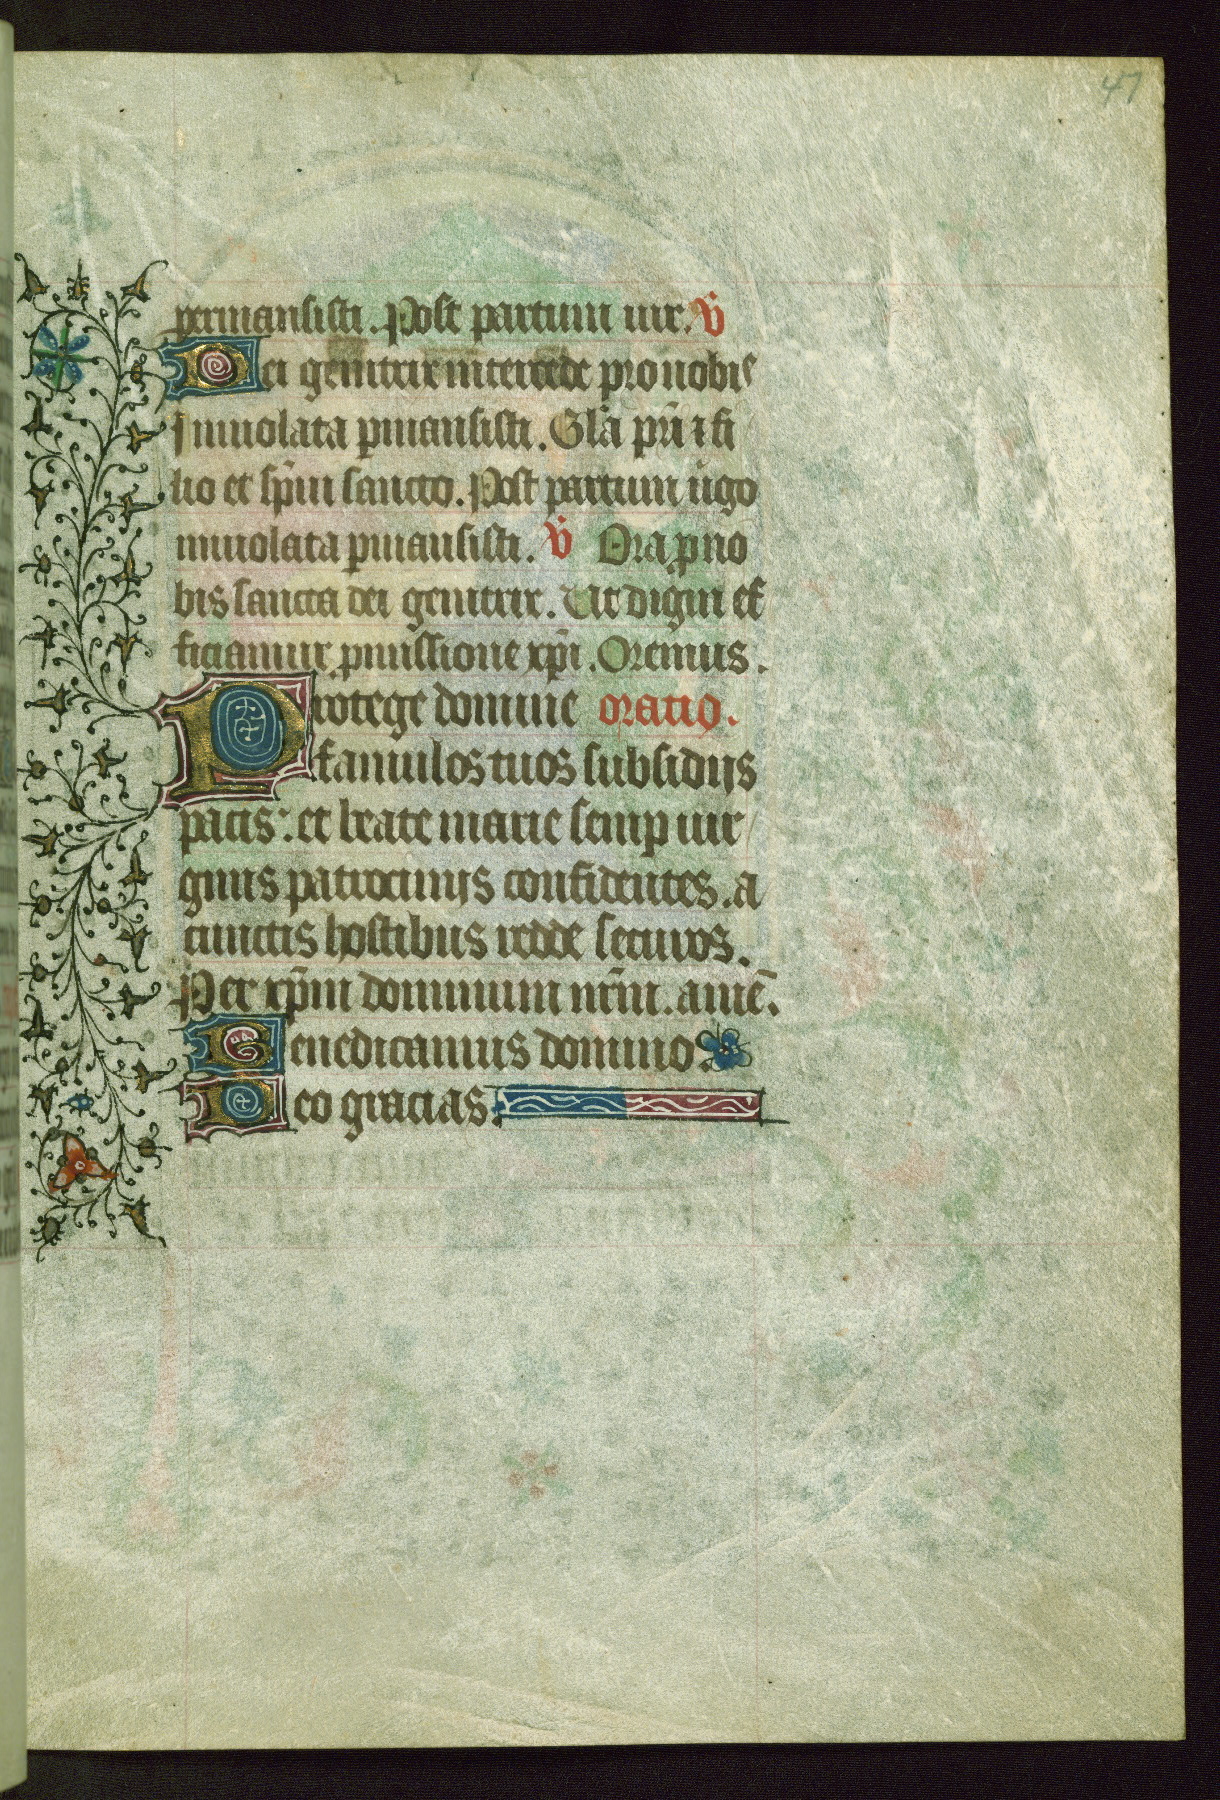 47
permansisti. Post partum uir. v̄
Dei genitrix intercede pro nobis
Inuiolata pmansisti. Gl̄a pr̄i ⁊ fi
lio et sp̄iu sancto. Post partum u̇go
inuiolata pmansisti. v̄ Ora p no
bis sancta dei genitrix. Ut digni ef
ficiamur pmissione xp̄i. Oremus.
Protege domine oratio.
famulos tuos subsidijs
pacis: et beate marie semp uir
ginis patrocinijs confidentes. a
cunctis hostibus redde securos.
Per xp̄m dominum nr̄m. amē.
Benedicamus domino.
Deo gracias.